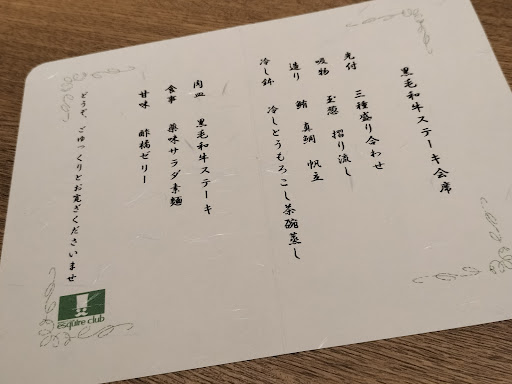 黒毛和牛ステーキ会席
先付 三種盛り合わせ
吸物 玉葱 摺り流し
造り 鮪 真鯛 帆立
冷し鉢 冷しとうもろこし茶碗蒸し
肉皿 黒毛和牛ステーキ
食事 薬味サラダ素麺
甘味 酢橘ゼリー
どうぞ、ごゆっくりとお寛ぎくださいませ
esquire club